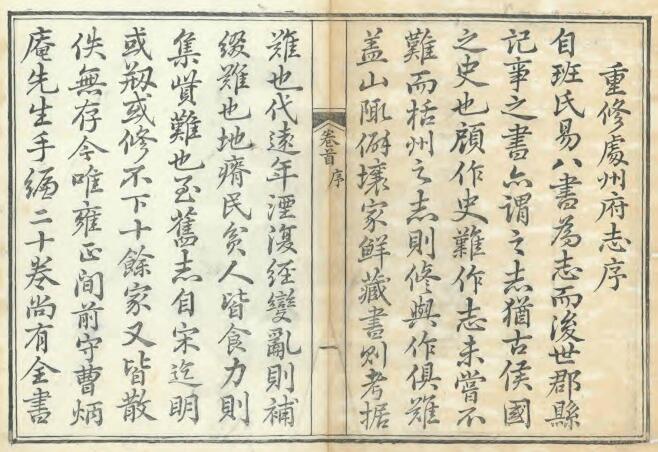 重修處州府志序
自班氏易八書為志而後世郡縣
記事之書亦謂之志猶古侯國
之史也顧作史難作志未嘗不
難而括州之志則修與作俱難
蓋山陬僻壤家鮮藏書則考据
卷首 序
一
難也代遠年湮復經變亂則補
綴難也地瘠民貧人皆食力則
集貲難也至舊志自宋迄明
或刱或修不下十餘家又皆散
佚無存今唯雍正间前守曹炳
庵先生手緝二十卷尚有全書